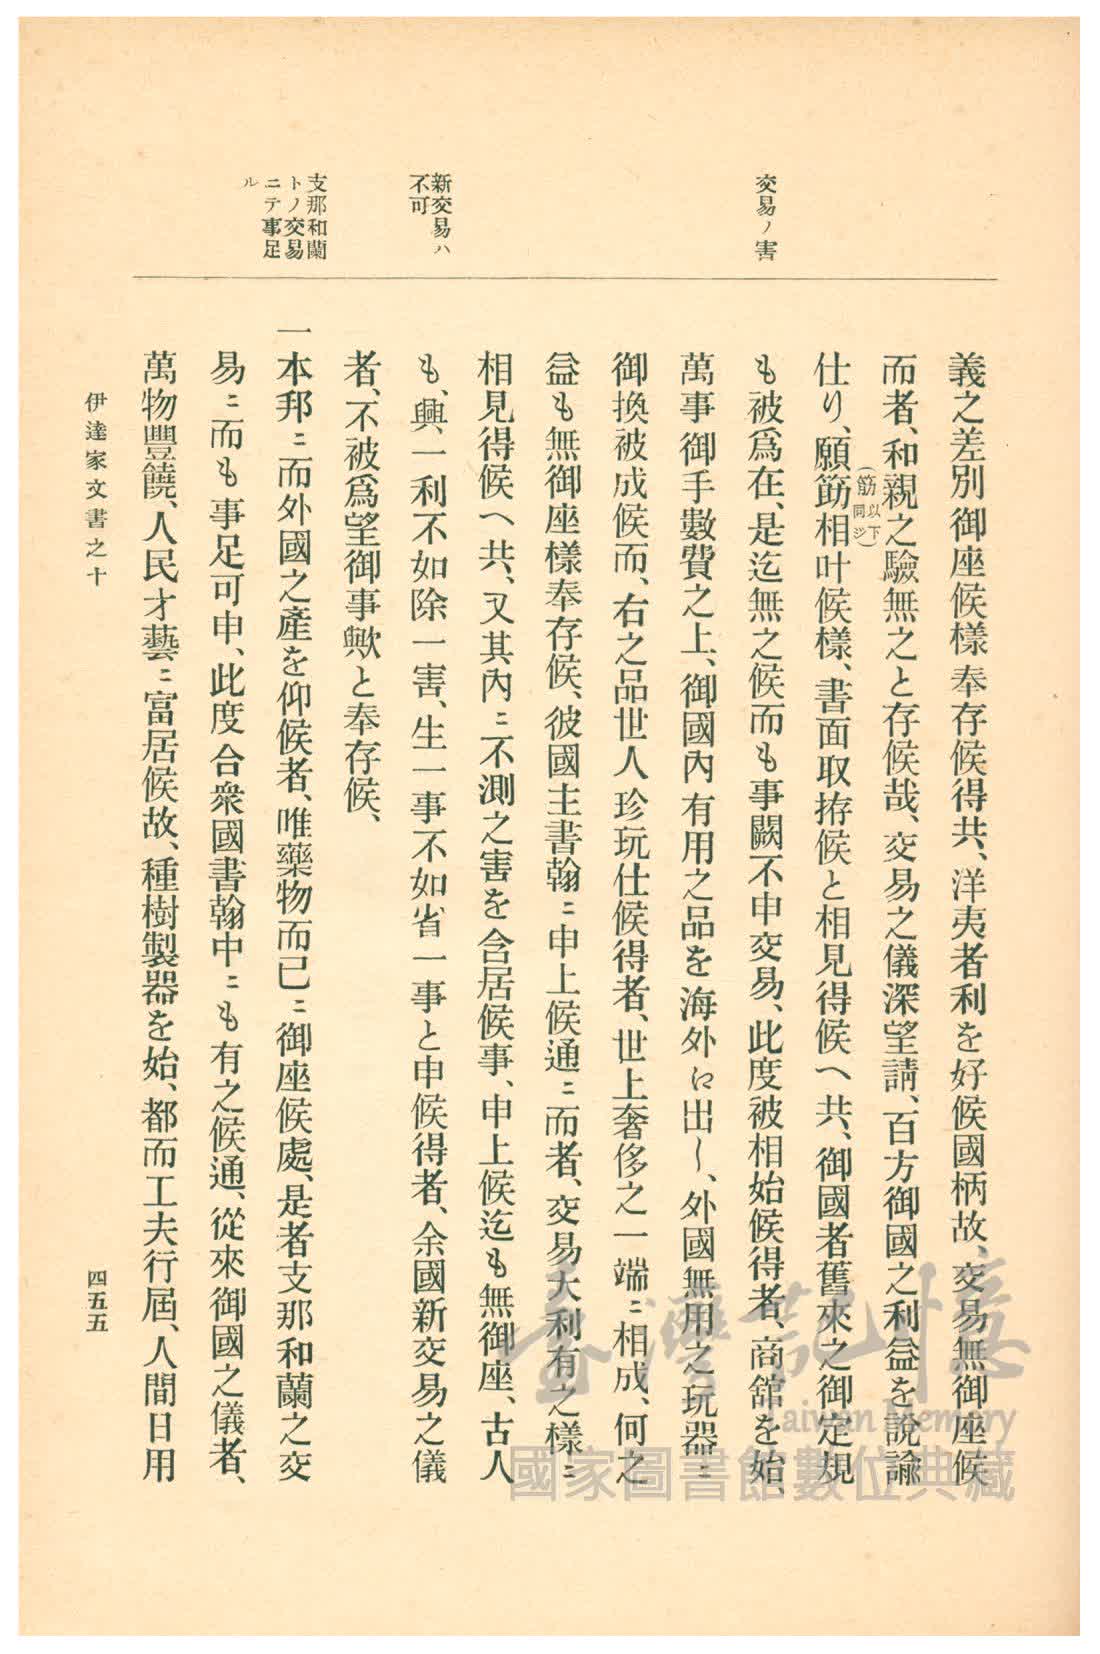 交易ノ害
新交易ハ
不可
支那和蘭
トノ交易
ニテ事足
ル
義之差別御座候樣奉存候得共、洋夷者利を好候國柄故、交易無御座候
而者、和親之驗無之と存候哉、交易之儀深望請、百方御國之利益を說諭
仕り、願筯相叶候樣、書面取拵候と相見得候へ共、御國者舊來之御定規
(筯以下同シ)
も被爲在、是迄無之候而も事闕不申交易、此度被相始候得者、商舘を始、
萬事御手數費之上、御國內有用之品を海外に出し、外國無用之玩器ニ
御換被成候而、右之品世人珍玩仕候得者、世上奢侈之一端ニ相成、何之
益も無御座樣奉存候、彼國主書翰ニ申上候通ニ而者、交易大利有之樣ニ
相見得候へ共、又其內ニ不測之害を含居候事、申上候迄も無御座、古人
も、興一利不如除一害、生一事不如省一事と申候得者、余國新交易之儀
者、不被爲望御事歟と奉存候、
一本邦ニ而外國之產を仰候者、唯藥物而已ニ御座候處、是者支那和蘭之交
易ニ而も事足可申、此度合衆國書翰中ニも有之候通、從來御國之儀者、
萬物豐饒、人民才藝ニ富居候故、種樹製器を始、都而工夫行屆、人間日用
伊達家文書之十
四五五
臺灣記憶
Taiwan Memory
國家圖書館數位典藏